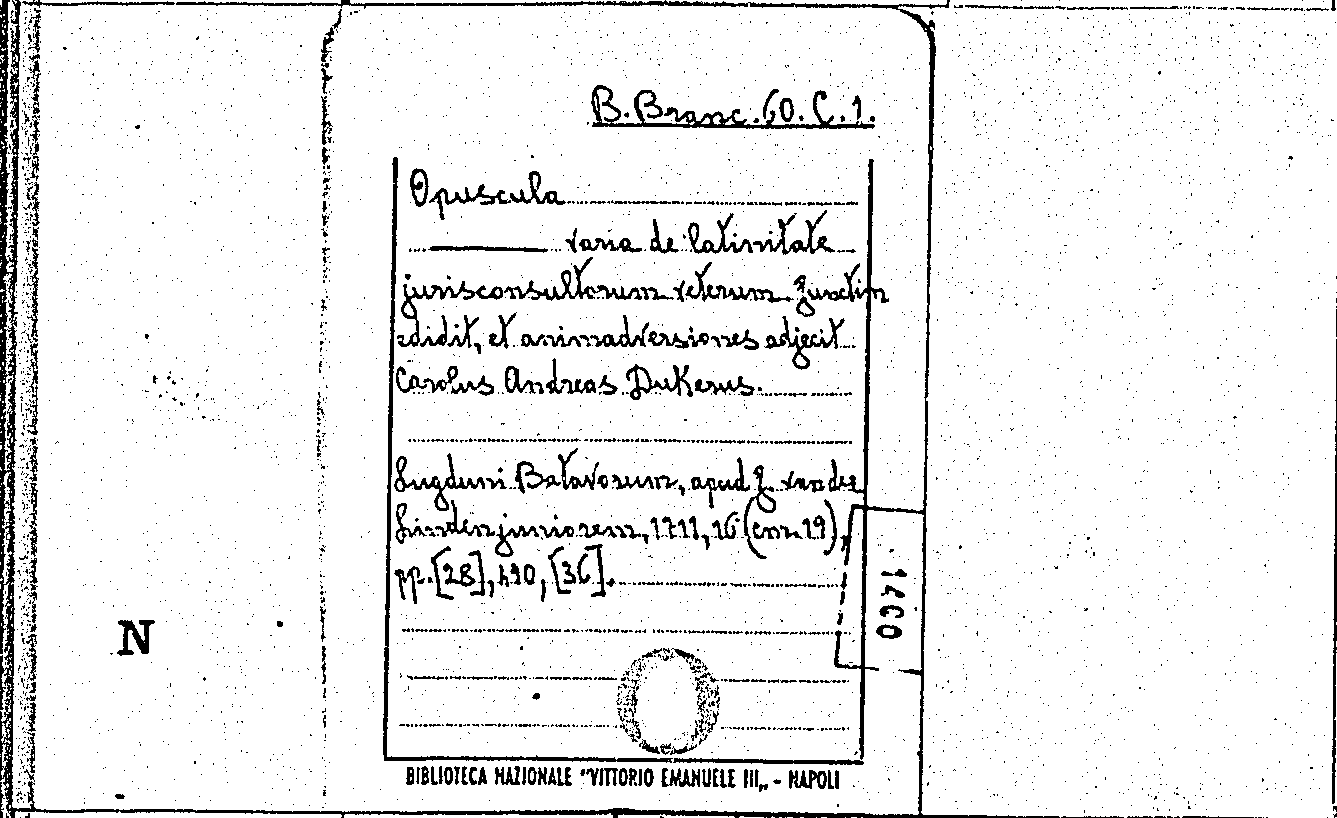 B. Branc. 60. C. 1.
Opuscula
varia de latinitate
jurisconsultorum veterum. Junctim
edidit, et animadversiones adjecit
Carolus Andreas Dukerus.
Lugduni Batavorum, apud J. vander
Linden juniorem, 1711, 16° (cm. 19),
pp. [28], 490, [36].
1400
N
BIBLIOTECA NAZIONALE "VITTORIO EMANUELE III„ - NAPOLI